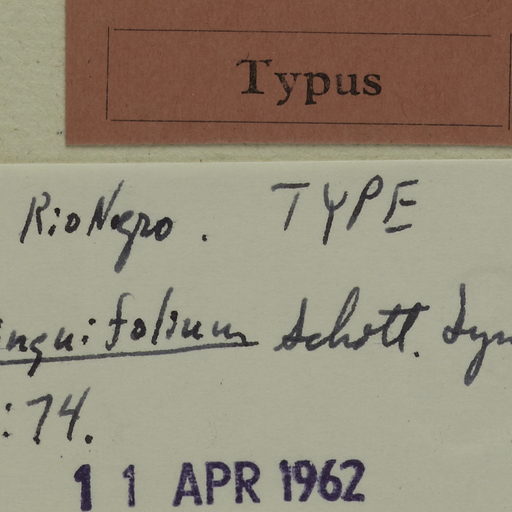 Typus
Rio Negro. TYPE
inquifolium Schott. Syn
:74.
11 APR 1962